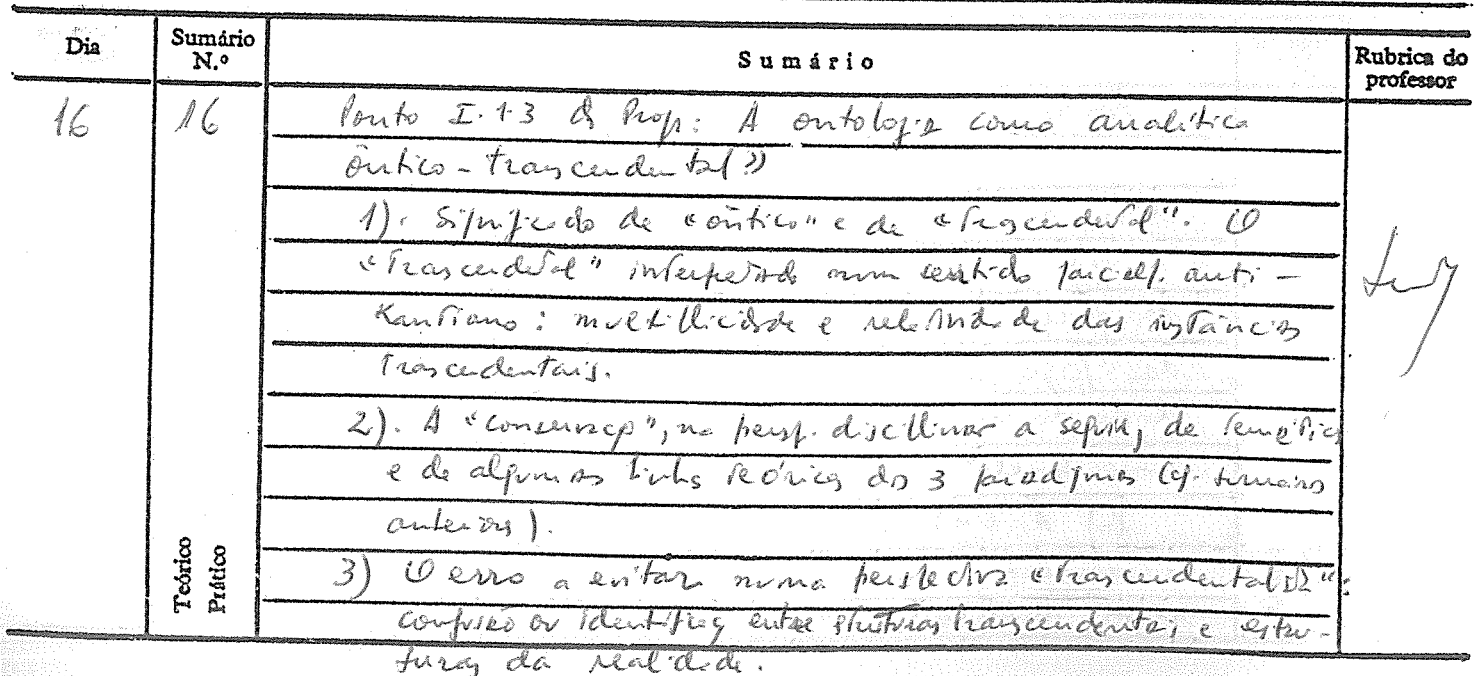 Dia Sumário N.º Sumário Rubrica do professor
16 16 Ponto I.1.3 do Prog: A ontologia como analítica
ôntico-transcendental »
1). Significado de «ôntico" e de «Trascendental". O
«Trascendental" interpretado num sentido parcial. anti-
Kantiano: multiplicidade e relatividade das instâncias
Trascendentais.
2). A «conservação", na persp. disciplinar a seguir, de temática
e de algumas linhas teóricas dos 3 paradigmas (cf. sumários
anteriores).
3) O erro a evitar numa perspectiva «Trascendentalista":
confusão ou identificação entre estruturas transcendentais e estru-
turas da realidade.
Teórico
Prático